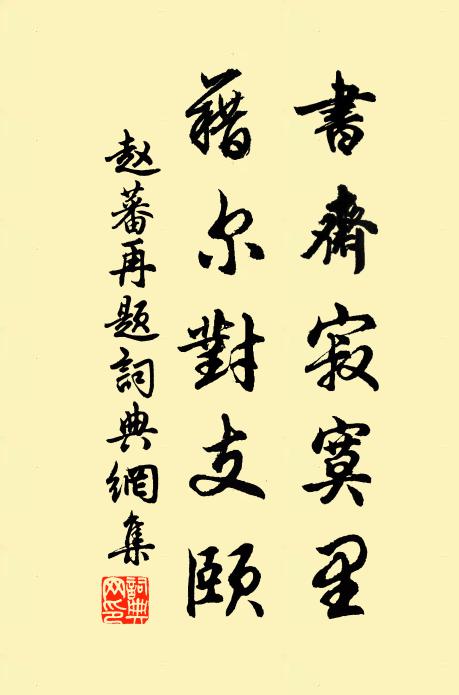 書齋寂寞里
藉尔對支頤
赵蕃再题詞典網集
詞典網印